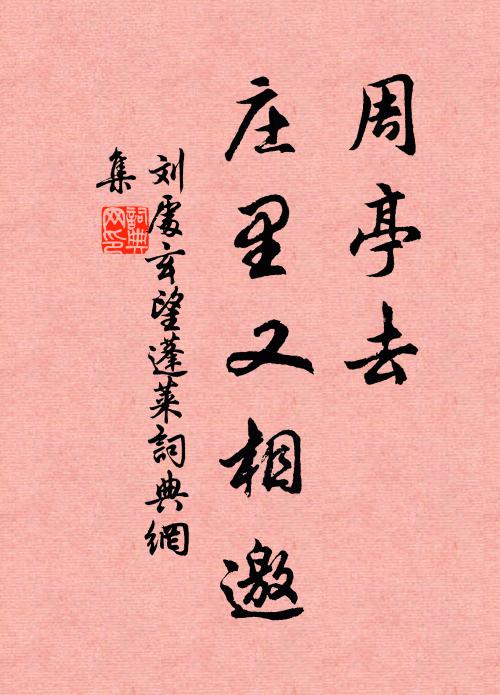 周亭去
庄里又相邀
刘处玄望蓬莱詞典網
集
詞典网印